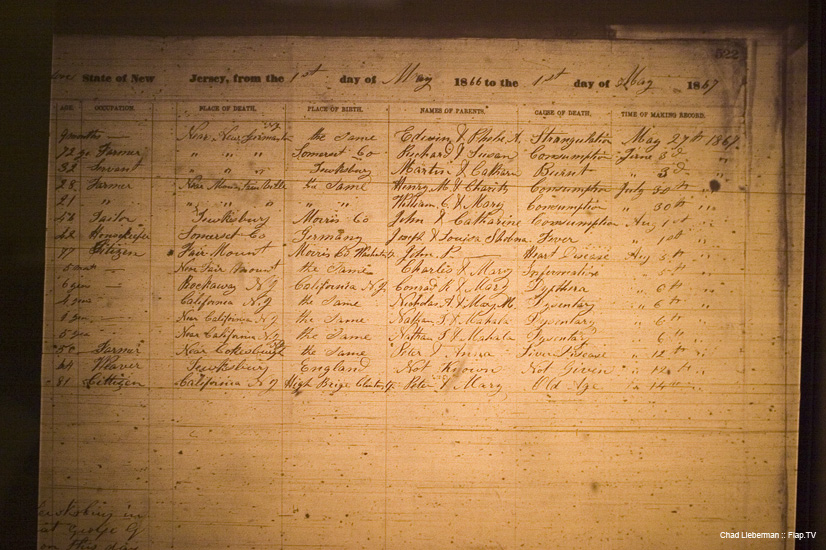 State of New Jersey, from the 1st day of May 1866 to the 1st day of May 1867
AGE. OCCUPATION. PLACE OF DEATH. PLACE OF BIRTH. NAMES OF PARENTS. CAUSE OF DEATH. TIME OF MAKING RECORD.
9 months — Near New Germantown the Same Edwin & Phebe A. Strangulation May 27th 1867
72 Farmer " " " Somerset Co Richard & Susan Consumption June 3d "
32 Servant " " " Tewksbury Martin & Cathern Burnt " 3d "
28 Farmer Near the Same Henry M. & Charity Consumption July 30th "
21 " " " " " " " William C. & Mary Consumption " 30 "
56 Tailor Tewksbury Morris Co John & Catharine Consumption Aug 1st "
42 Housekeeper Somerset Co Germany Joseph & Louisa Fever " 1st "
77 Citizen Fair Mount Morris Co John P. — Heart Disease Aug 5th "
Near Fair Mount the Same Charles & Mary " 5th "
Rockaway N.J. California N.J. Conrad & Mary " 6th "
California N.J. the Same Nicholas A. & Mary M. Dysentary " 6th "
Near California N.J. the Same Nathan & Mahala Dysentary " 6th "
Near California N.J. the Same Nathan & Mahala Dysentary " 6th "
50 Farmer Near Cokesburgh the Same Peter & Anna Liver Disease " 12th "
64 Weaver Tewksbury England Not Known Not Given " 12th "
81 Cittizen California N.J. High Brige Peter & Mary Old Age " 14th "
Chad Lieberman :: Flap.TV